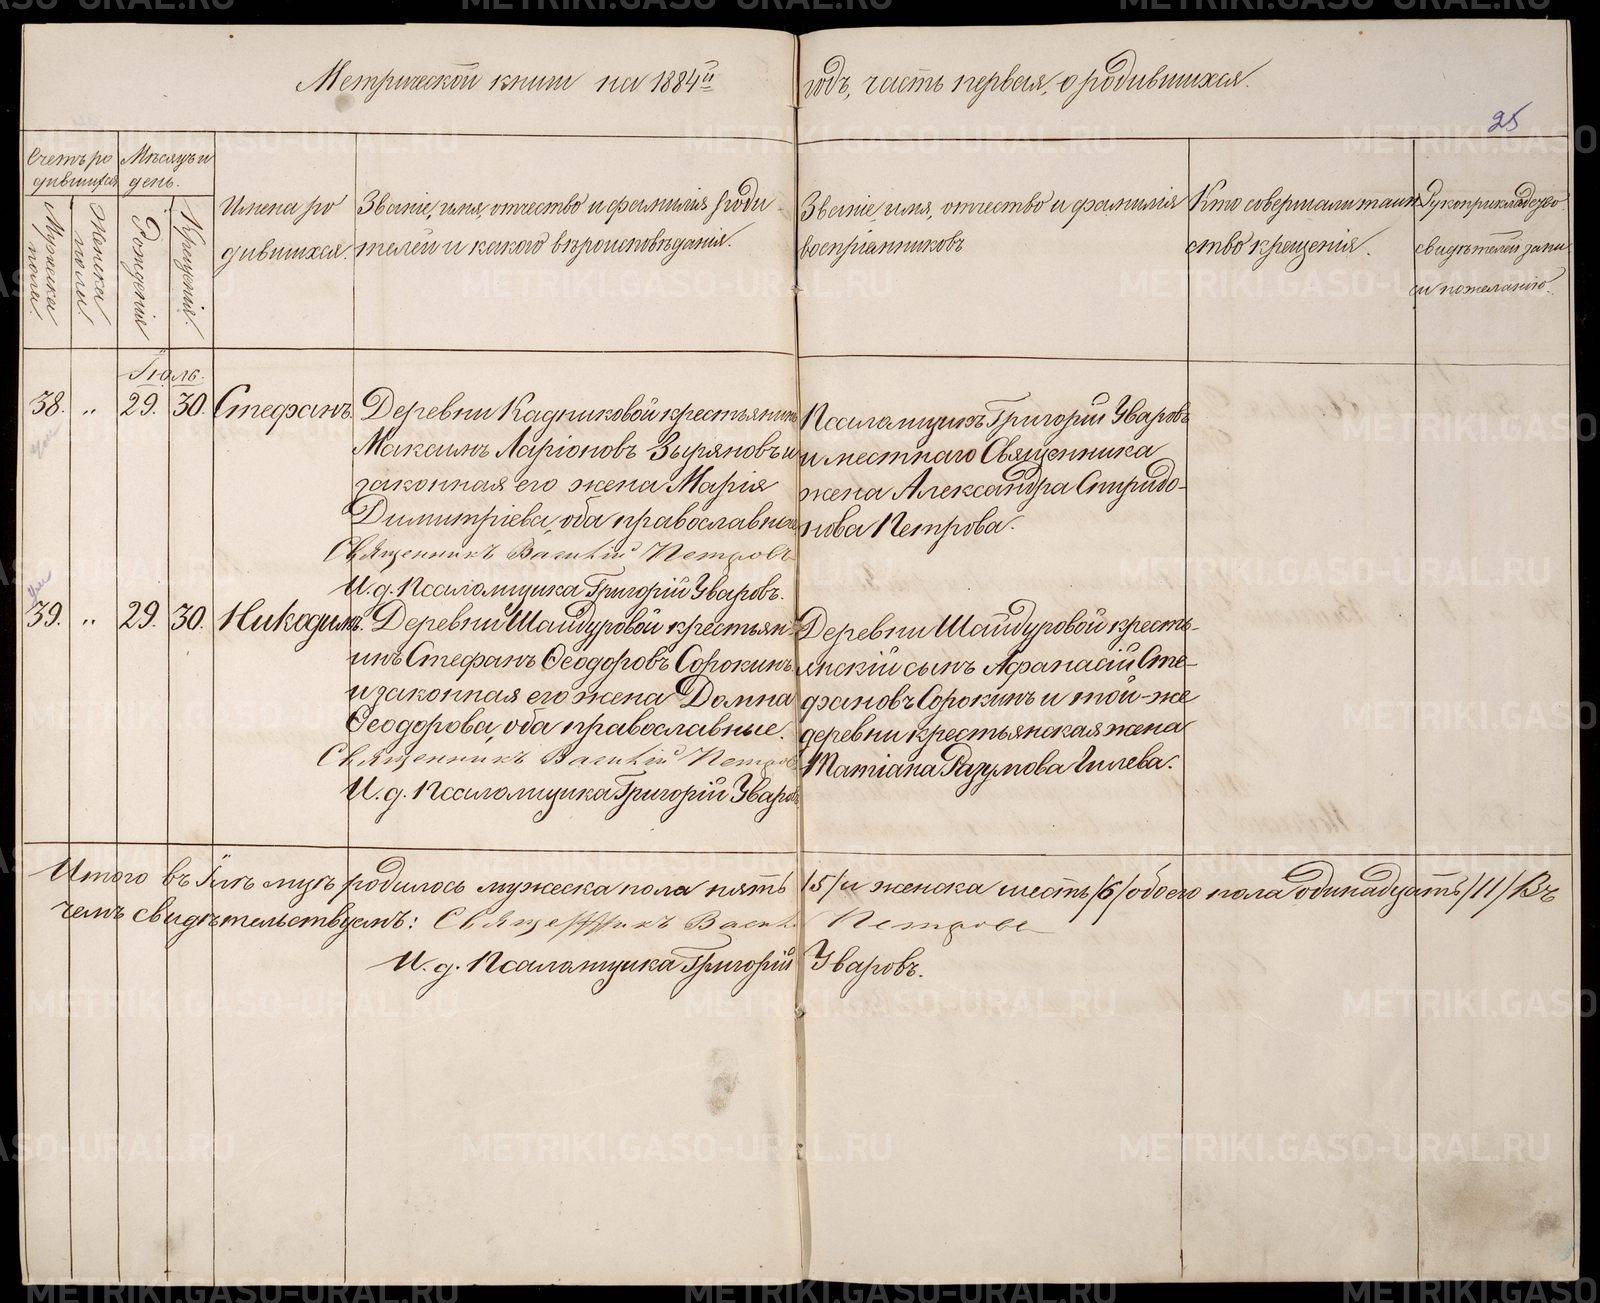 Метрической книги на 1884й годъ, часть первая, о родившихся.
25
Счетъ ро
дившихся
Мѣсяцъ и
день.
Мужеска
пола.
Женска
пола
Рожденія
Крещенія.
Имена ро
дившихся.
Званіе, имя, отчество и фамилія роди
телей и какого вѣроисповѣданія.
Званіе, имя, отчество и фамилія
воспріемниковъ
Кто совершалъ таин
ство крещенія.
Рукоприкладство
свидѣтелей запи
си по желанію.
Іюль.
38. „ 29. 30. Стефанъ.
Деревни Кадниковой крестьянинъ
Максимъ Ларіоновъ Зыряновъ и
законная его жена Марія
Димитріева, оба православные.
Священникъ Василій Петровъ
И. д. Псаломщика Григорій Уваровъ.
Псаломщикъ Григорій Уваровъ
и местнаго Священника
жена Александра Спиридо-
нова Петрова.
39. „ 29. 30. Никодимъ.
Деревни Шайдуровой крестьян-
инъ Стефанъ Ѳеодоровъ Сорокинъ
и законная его жена Домна
Ѳеодорова, оба православные.
Священникъ Василій Петровъ
И. д. Псаломщика Григорій Уваровъ
Деревни Шайдуровой кресть-
янскій сынъ Афанасій Сте-
фановъ Сорокинъ и той-же
деревни крестьянская жена
Татіана Разумова Гилева.
Итого въ Іюлѣ м-цѣ родилось мужеска пола пять /5/ и женска шесть /6/ обоего пола одинадцать /11/ Въ
чемъ свидѣтельствуемъ: Священникъ Васил Петровъ
И. д. Псаломщика Григорій Уваровъ.
METRIKI.GASO-URAL.RU